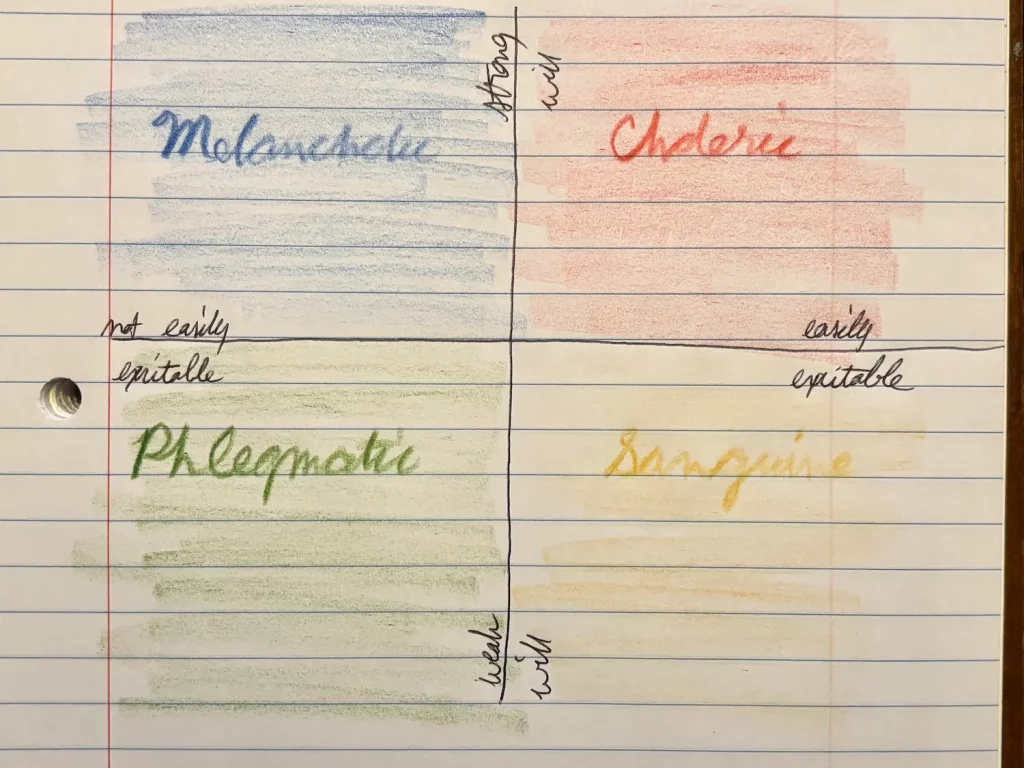 strong
will
Melancholic
Choleric
not easily
easily
exitable
exitable
Phlegmatic
Sanguine
weak
will